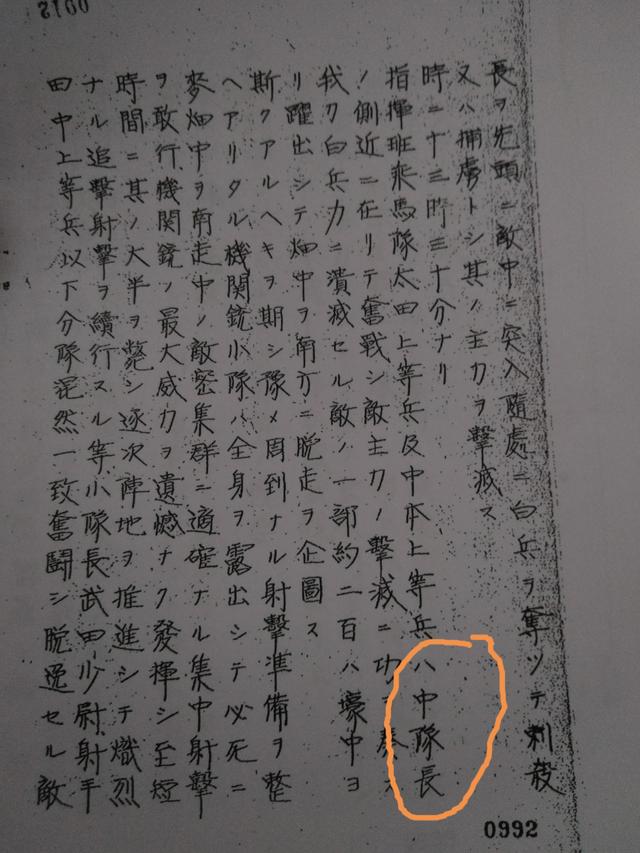 2100
長ヲ先頭ニ敵中ニ突入隨處ニ白兵ヲ奪ソテ刺殺
又ハ捕虜トシ其ノ主力ヲ撃滅ス
時ニ十三時三十分ナリ
指揮班乘馬隊太田上等兵及中本上等兵ハ中隊長
ノ側近ニ在リテ奮戰シ敵主力ノ撃滅ニ功ヲ奏ス
我カ白兵力ニ潰滅セル敵ノ一部約二百ハ壕中ヨ
リ躍出シテ畑中ヲ南方ニ脱走ヲ企圖ス
斯クアルヘキヲ期シ豫メ周到ナル射撃準備ヲ整
ヘアリタル機関銃小隊ハ全身ヲ露出シテ必死ニ
麥畑中ヲ南走中ノ敵密集群ニ適確ナル集中射撃
ヲ敢行機関銃ノ最大威力ヲ遺憾ナク發揮シ至短
時間ニ其ノ大半ヲ斃シ逐次陣地ヲ推進シテ熾烈
ナル追撃射撃ヲ續行スル等小隊長武田少尉射手
田中上等兵以下分隊渾然一致奮鬪シ脱逸セル敵
0992